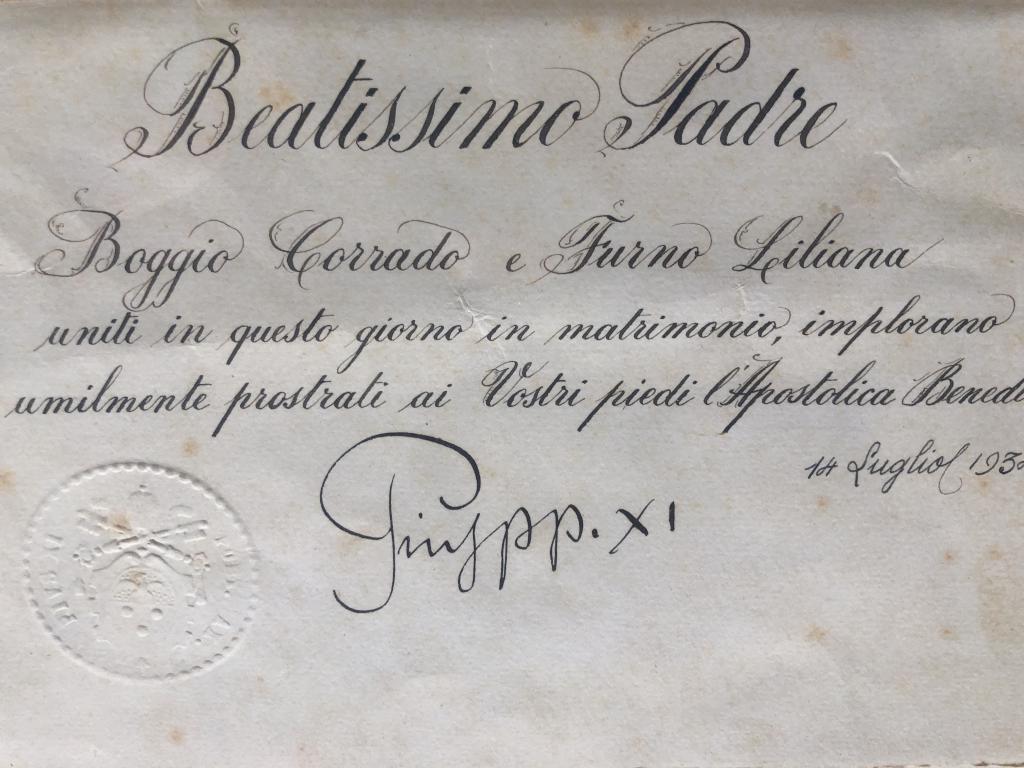 Beatissimo Padre
Boggio Corrado e Furno Liliana
uniti in questo giorno in matrimonio, implorano
umilmente prostrati ai Vostri piedi l'Apostolica Benedi
14 Luglio 193
Pius pp. XI